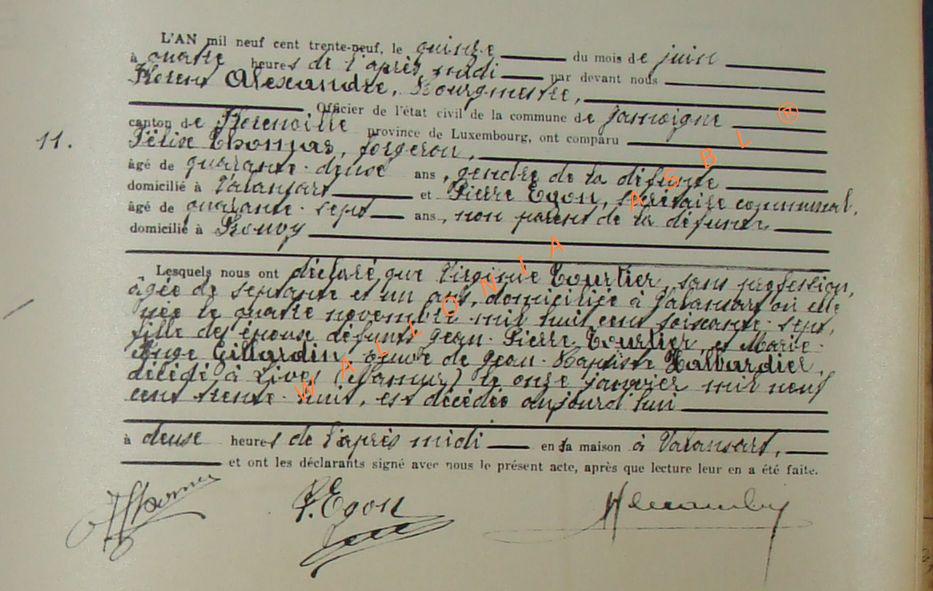 L'AN mil neuf cent trente-neuf, le quinze du mois de juin
à quatre heures de l'après midi par devant nous
Florent Alexandre, Bourgmestre,
Officier de l'état civil de la commune de Jamoigne
canton de Florenville province de Luxembourg, ont comparu
11. Félise Thomas, forgeron,
âgé de quarante-deuse ans, gendre de la défunte
domicilié à Valansart et Pierre Egon, secrétaire communal,
âgé de quarante-sept ans, non parent de la défunte
domicilié à Rouvy
Lesquels nous ont déclaré que Virginie Tourtier, sans profession,
âgée de septante et un ans, domiciliée à Valansart où elle
née le quatre novembre mil huit cent soixante-sept,
fille des époux défunts Jean-Pierre Tourtier et Marie-
Ange Gillardin, veuve de Jean-Baptiste Hallardier,
décédé à Lives (Namur) le onze janvier mil neuf
cent trente-huit, est décédée aujourd'hui
à deuse heures de l'après midi en sa maison à Valansart,
et ont les déclarants signé avec nous le présent acte, après que lecture leur en a été faite.
FThomas P. Egon
WALLONIA ASBL ®